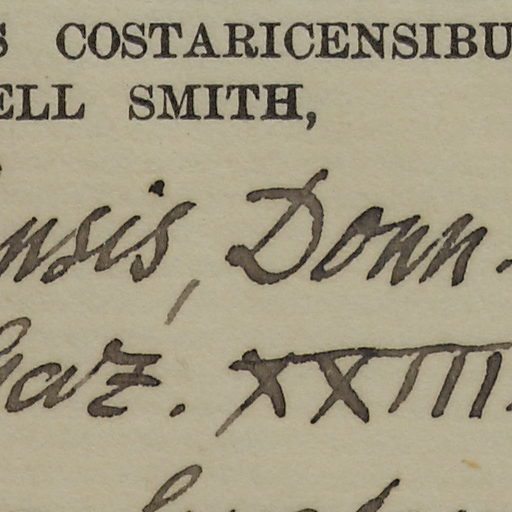 S COSTARICENSIBU
ELL SMITH,
nsis, Donn.
Gaz. XXIII.